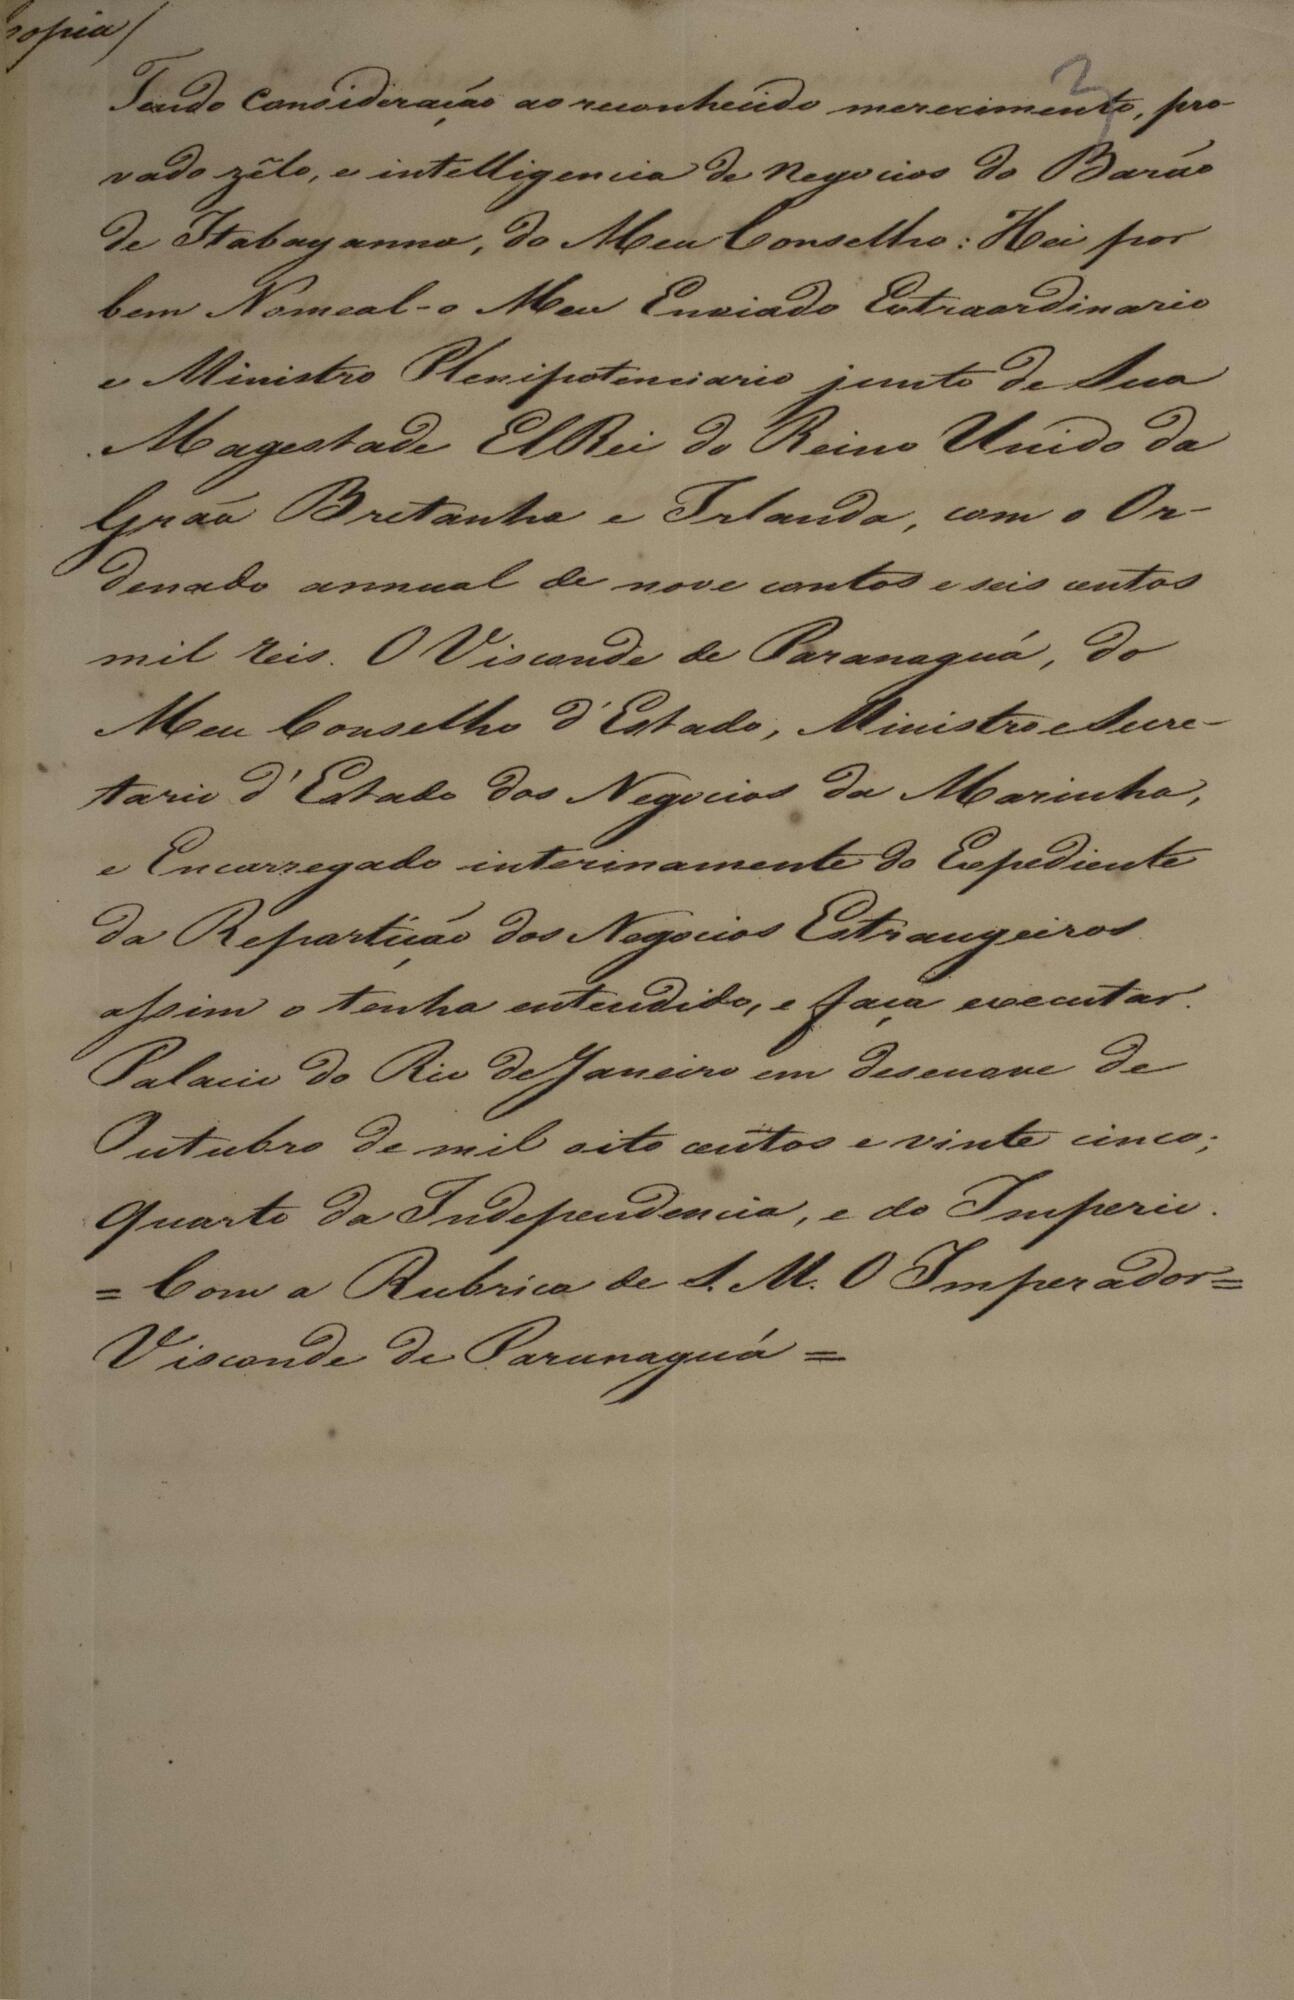 Copia/
3
Tendo Consideração ao reconhecido merecimento, pro-
vado zêlo, e intelligencia de Negocios do Barão
de Itabayanna, do Meu Conselho: Hei por
bem Nomeal-o Meu Enviado Extraordinario
e Ministro Plenipotenciario junto de Sua
Magestade ElRei do Reino Unido da
Grão Bretanha e Irlanda, com o Or-
denado annual de nove contos e seis centos
mil reis. O Visconde de Paranaguá, do
Meu Conselho d'Estado, Ministro e Secre-
tario d'Estado dos Negocios da Marinha,
e Encarregado interinamente do Expediente
da Repartição dos Negocios Estrangeiros
assim o tenha entendido, e faça executar.
Palacio do Rio de Janeiro em desenove de
Outubro de mil oito centos e vinte cinco;
Quarto da Independencia, e do Imperio.
= Com a Rubrica de S. M. O Imperador =
Visconde de Paranaguá =